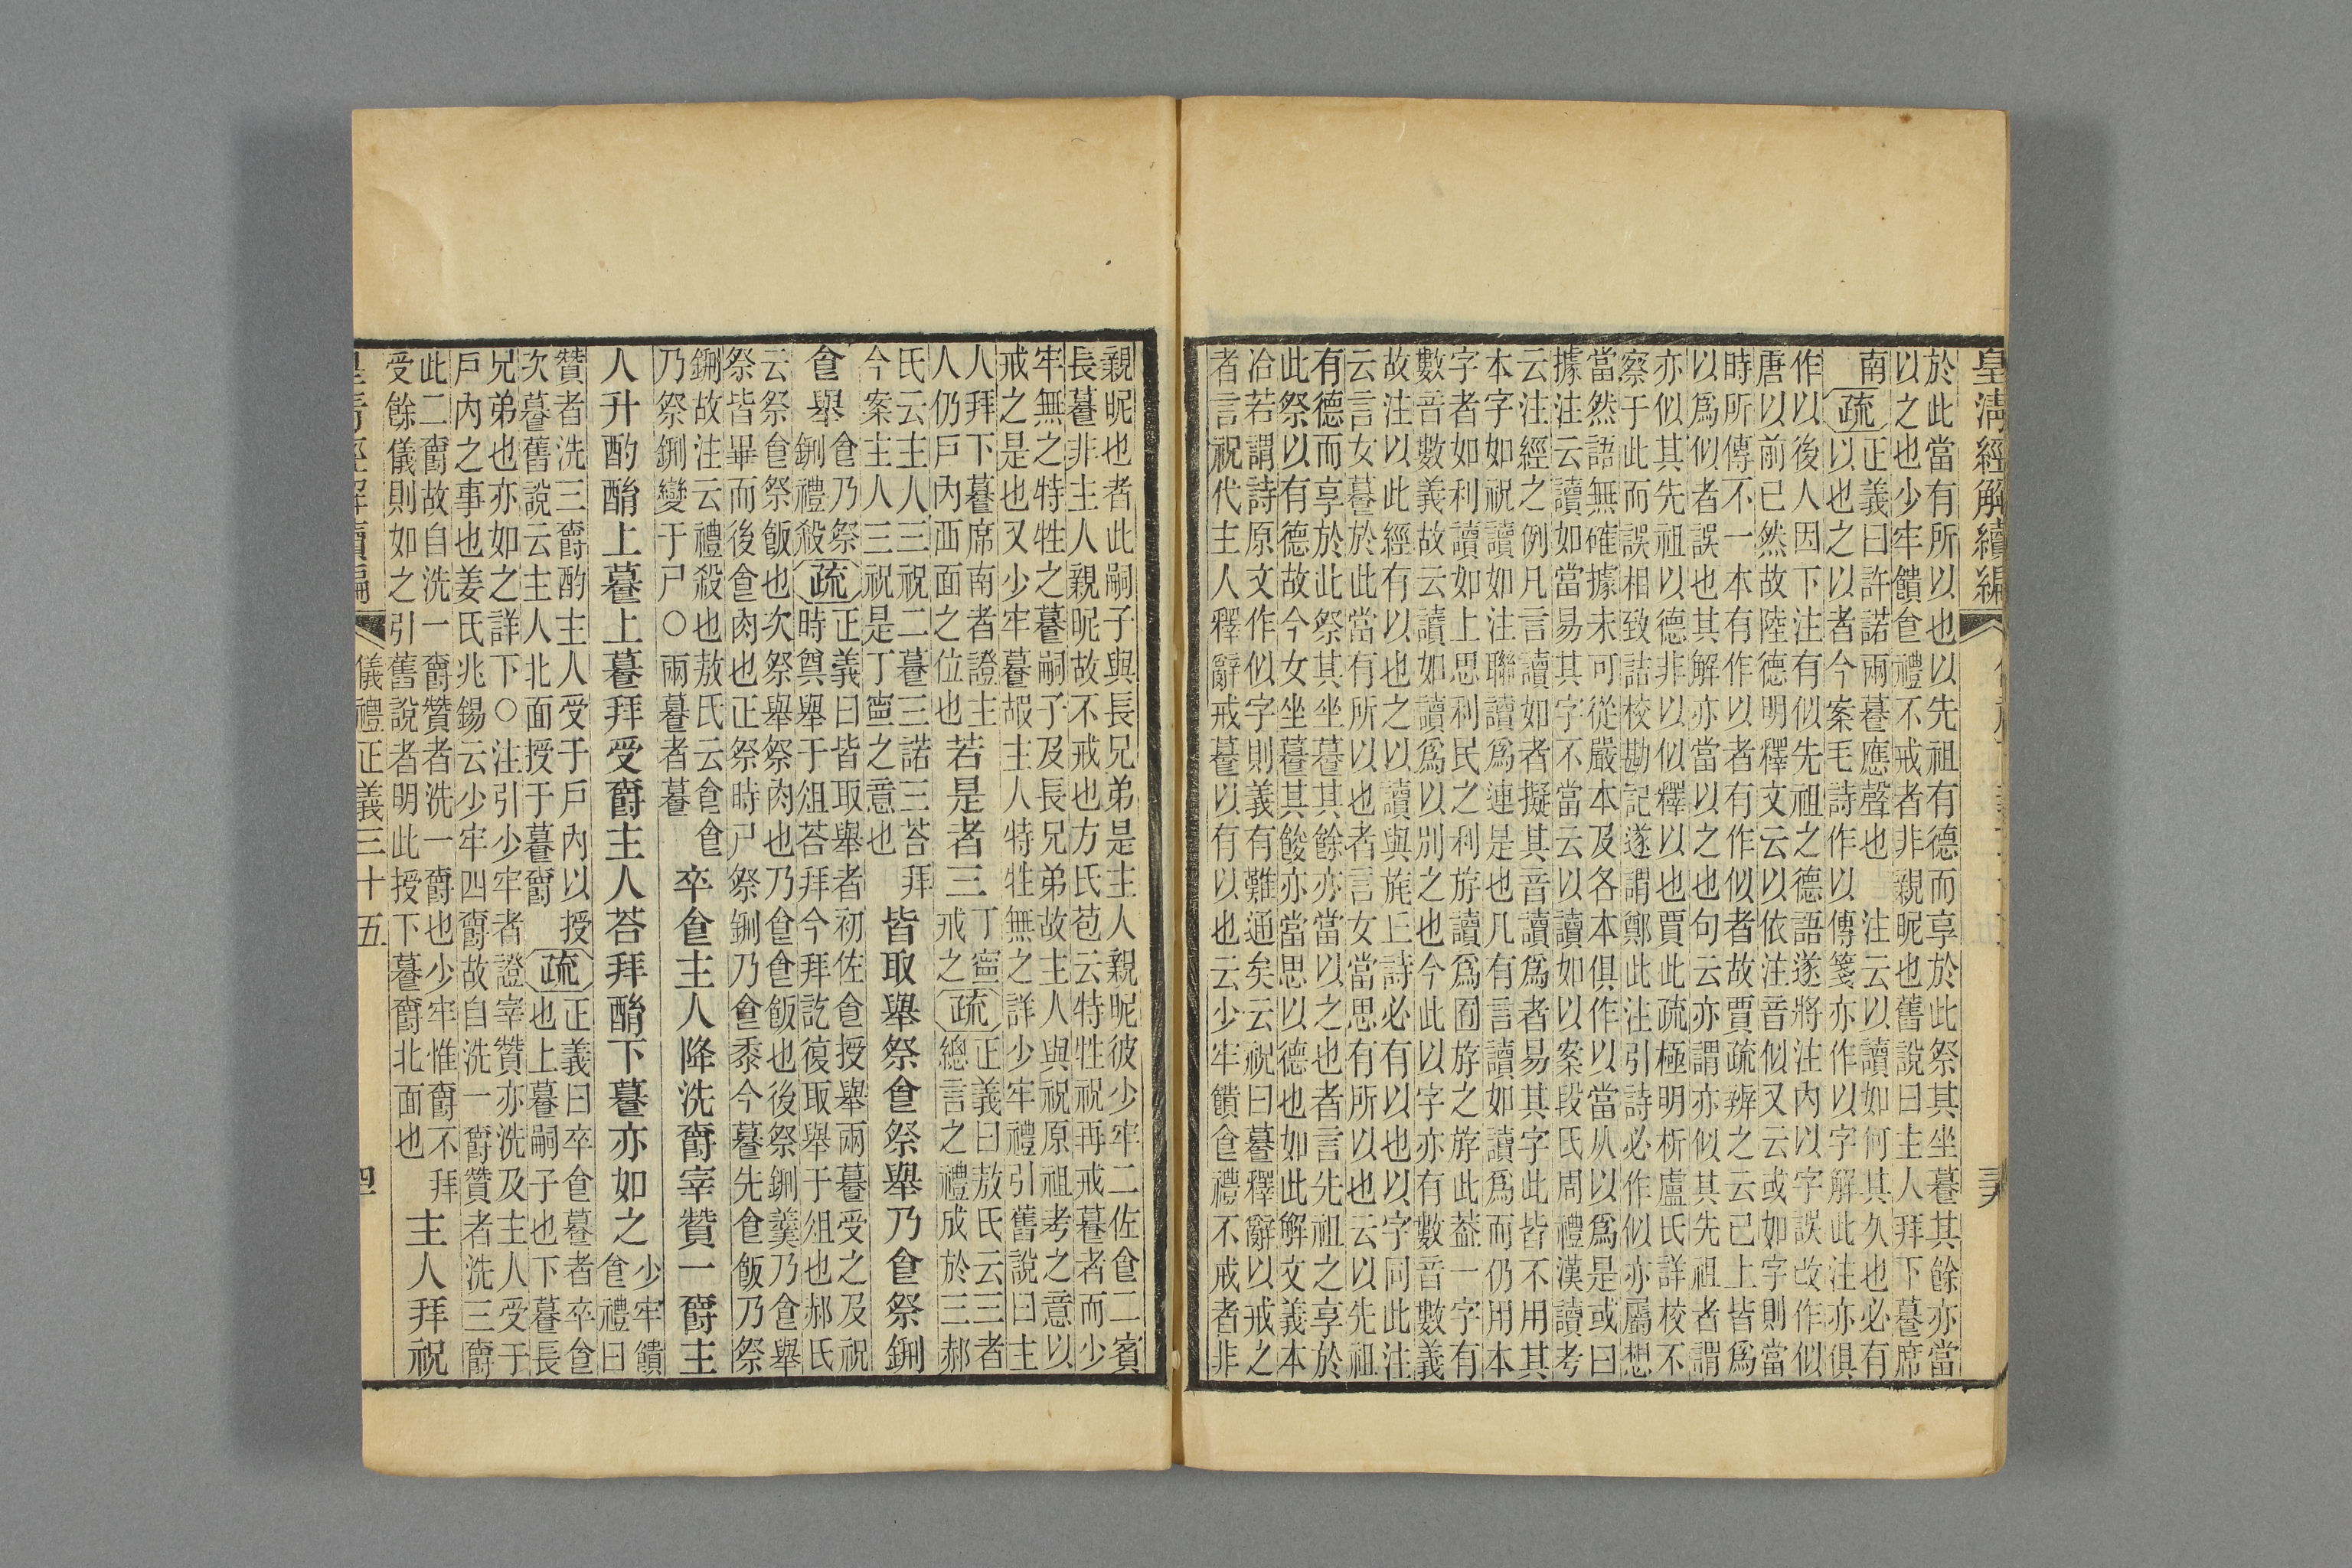 皇清經解續編
於此當有所以也以先祖有德而享於此祭其坐𦫵其餘亦當
以之也少牢饋食禮不戒者非親昵也舊說曰主人拜下𦫵席
南
疏
正義曰許諾兩𦫵應聲也 注云以讀如何其久也必有
以也之以者今案毛詩作以傳箋亦作以字解此注亦俱
作以後人因下注有似先祖之德語遂將注內以字誤改作似
唐以前已然故陸德明釋文云以依注音似又云或如字則當
時所傳不一本有作以者有作似者故賈疏辨之云已上皆爲
以爲似者誤也其解亦當以之也句云亦謂亦似其先祖者謂
亦似其先祖以德非以似釋以也賈此疏極明析盧氏詳校不
察于此而誤相致詰校勘記遂謂鄭此注引詩必作似亦屬想
當然語無確據未可從嚴本及各本俱作以當从以爲是或曰
據注云讀如當易其字不當云以讀如以案段氏周禮漢讀考
云注經之例凡言讀如者擬其音讀爲者易其字此皆不用其
本字如祝讀如注聯讀爲連是也凡有言讀如讀爲而仍用本
字者如利讀如上思利民之利斿讀爲囿斿之斿此葢一字有
數音數義故云讀如讀爲以別之也今此以字亦有數音數義
故注以此經有以也之以讀與旄丘詩必有以也以字同此注
云言女𦫵於此當有所以也者言女當思有所以也云以先祖
有德而享於此祭其坐𦫵其餘亦當以之也者言先祖之享於
此祭以有德故今女坐𦫵其餕亦當思以德也如此解文義本
洽若謂詩原文作似字則義有難通矣云祝曰𦫵釋辭以戒之
者言祝代主人釋辭戒𦫵以有以也云少牢饋食禮不戒者非
親昵也者此嗣子與長兄弟是主人親昵彼少牢二佐食二賓
長𦫵非主人親昵故不戒也方氏苞云特牲祝再戒𦫵者而少
牢無之特牲之𦫵嗣子及長兄弟故主人與祝原祖考之意以
戒之是也又少牢𦫵嘏主人特牲無之詳少牢禮引舊說曰主
人拜下𦫵席南者證主
人仍戶內西面之位也
若是者三
丁寧
戒之
疏
正義曰敖氏云三者
總言之禮成於三郝
氏云主人三祝二𦫵三諾三荅拜
今案主人三祝是丁寧之意也
皆取舉祭食祭舉乃食祭鉶
食舉
食乃祭
鉶禮殺
疏
正義曰皆取舉者初佐食授舉兩𦫵受之及祝
時奠舉于俎荅拜今拜訖復取舉于俎也郝氏
云祭食祭飯也次祭舉祭肉也乃食食飯也後祭鉶羹乃食舉
祭皆畢而後食肉也正祭時尸祭鉶乃食黍今𦫵先食飯乃祭
鉶故注云禮殺也敖氏云食食
乃祭鉶變于尸○兩𦫵者𦫵
卒食主人降洗爵宰贊一爵主
人升酌酳上𦫵上𦫵拜受爵主人荅拜酳下𦫵亦如之
少牢饋
食禮曰
贊者洗三爵酌主人受于戶內以授
次𦫵舊說云主人北面授于𦫵爵
疏
正義曰卒食𦫵者卒食
也上𦫵嗣子也下𦫵長
兄弟也亦如之詳下○注引少牢者證宰贊亦洗及主人受于
戶內之事也姜氏兆錫云少牢四爵故自洗一爵贊者洗三爵
此二爵故自洗一爵贊者洗一爵也少牢惟爵不拜
受餘儀則如之引舊說者明此授下𦫵爵北面也
主人拜祝
儀禮正義三十五